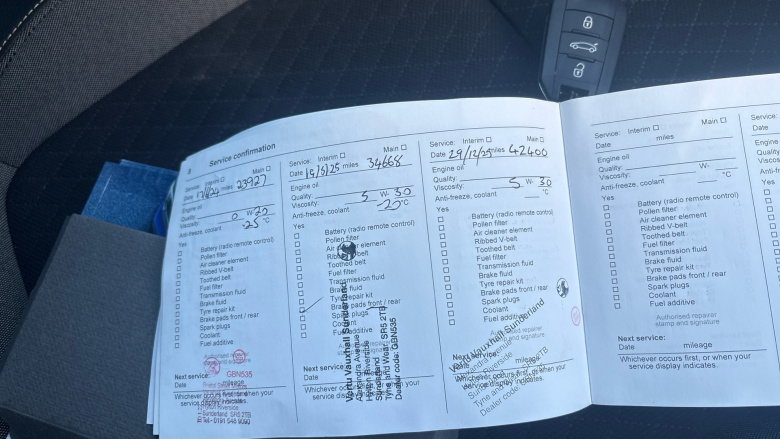 8
Service confirmation
Interim Main
miles 23927
Engine oil
Quality:
Viscosity: 0 W- 20
Anti-freeze, coolant -25 °C
Yes
Battery (radio remote control)
Pollen filter
Air cleaner element
Ribbed V-belt
Toothed belt
Fuel filter
Transmission fluid
Brake fluid
Tyre repair kit
Brake pads front / rear
Spark plugs
Coolant
Fuel additive
Authorised repairer
stamp and signature
GBN535
Next service:
Date mileage
Whichever occurs first, or when your
service display indicates.
Sunderland SR5 2TB
Tel: 0191 548 9090
Service: Interim Main
Date miles 34668
Engine oil
Quality:
Viscosity: 5 W- 30
Anti-freeze, coolant -20 °C
Yes
Battery (radio remote control)
Pollen filter
Air cleaner element
Ribbed V-belt
Toothed belt
Fuel filter
Transmission fluid
Brake fluid
Tyre repair kit
Brake pads front / rear
Spark plugs
Coolant
Fuel additive
Next service:
Date
Whichever occurs
service display
Vertu Vauxhall Sunderland
Alexandra Avenue
Riverside
Sunderland
Tyne and Wear, SR5 2TB
Dealer code: GBN535
Service: Interim Main
Date 29/12/25 miles 42400
Engine oil
Quality:
Viscosity: 5 W- 30
Anti-freeze, coolant °C
Yes
Battery (radio remote control)
Pollen filter
Air cleaner element
Ribbed V-belt
Toothed belt
Fuel filter
Transmission fluid
Brake fluid
Tyre repair kit
Brake pads front / rear
Spark plugs
Coolant
Fuel additive
Authorised repairer
stamp and signature
Next service:
Date mileage
Whichever occurs first, or when your
service display indicates.
Vertu Vauxhall Sunderland
Riverside
Dealer code:
Service: Interim Main
Date miles
Engine oil
Quality:
Viscosity: W-
Anti-freeze, coolant °C
Yes
Battery (radio remote control)
Pollen filter
Air cleaner element
Ribbed V-belt
Toothed belt
Fuel filter
Transmission fluid
Brake fluid
Tyre repair kit
Brake pads front / rear
Spark plugs
Coolant
Fuel additive
Authorised repairer
stamp and signature
Next service:
Date mileage
Whichever occurs first, or when your
service display indicates.
Service:
Date
Engine oil
Quality:
Viscosity:
Anti-
Yes